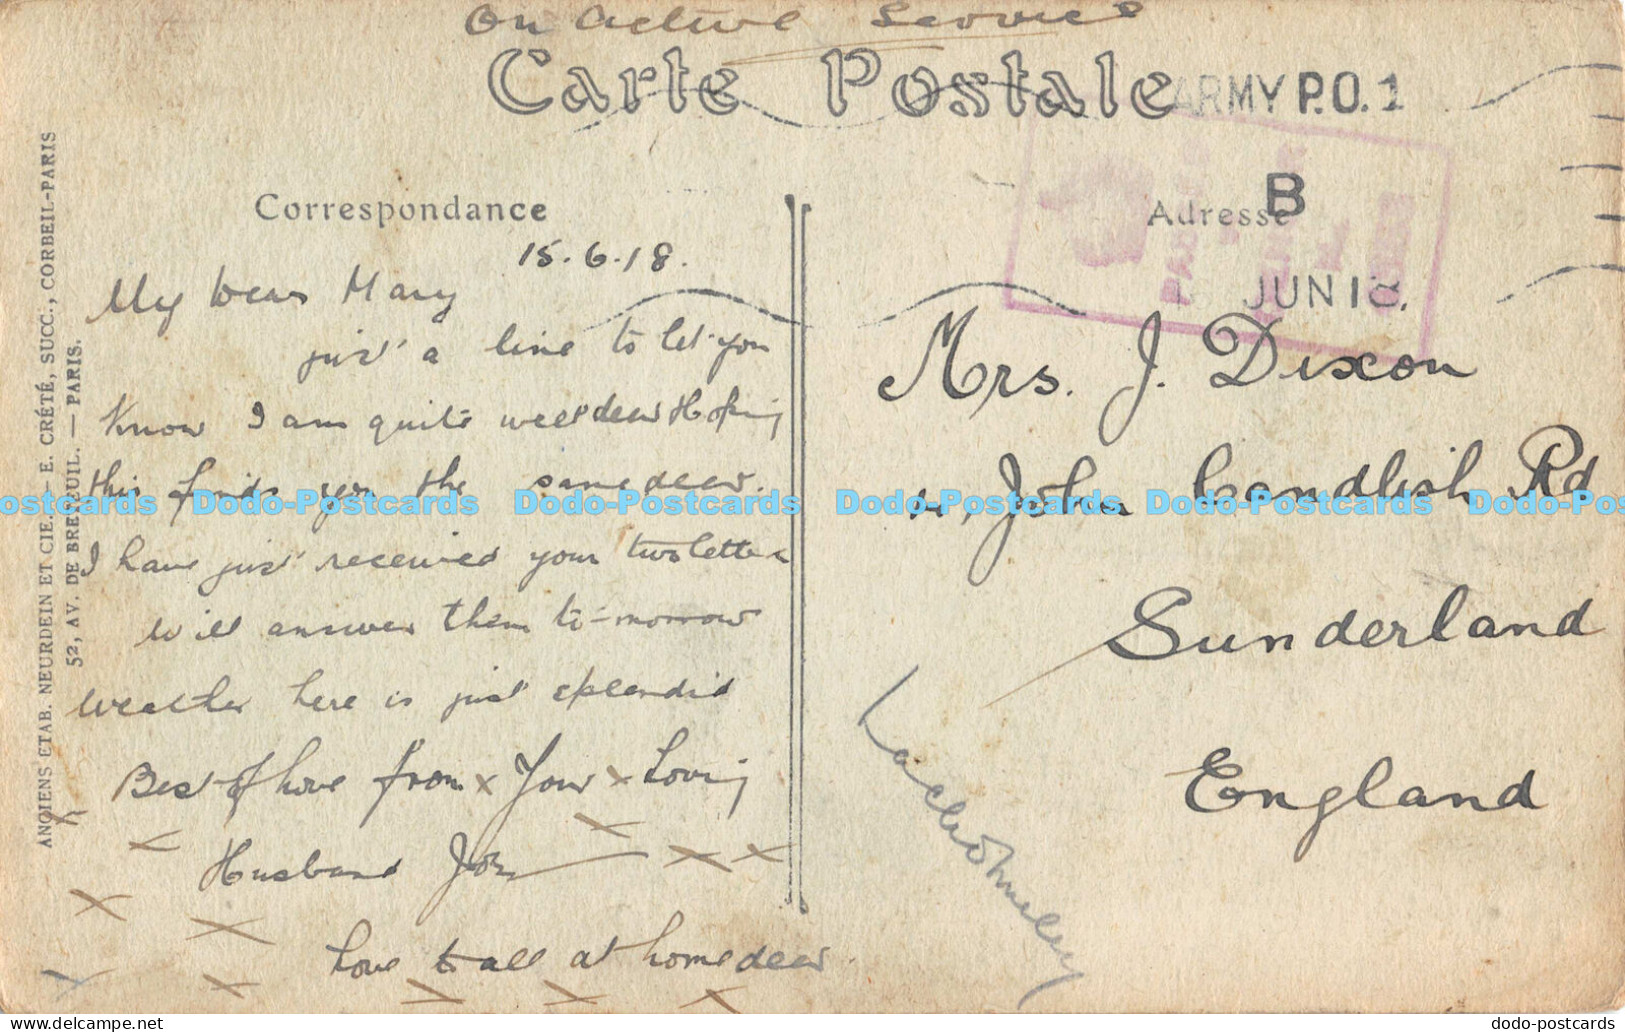 On Active Service
Carte Postale
ARMY P.O. 1
B
JUN 18.
ANCIENS ETAB. NEURDEIN ET CIE. — E. CRÉTÉ, SUCC., CORBEIL-PARIS
52, AV. DE BRETEUIL. — PARIS.
Correspondance
15.6.18.
My Dear Mary
just a line to let you
know I am quite well dear Hoping
this finds you the same dear.
I have just received your two letters
will answer them to-morrow
weather here is just splendid
Best of Love from x Your x Loving
Husband John
Love to all at home dear.
Adresse
Mrs. J. Dixon
John Candlish Rd
Sunderland
England
Dodo-Postcards Dodo-Postcards Dodo-Postcards Dodo-Postcards
dodo-postcards